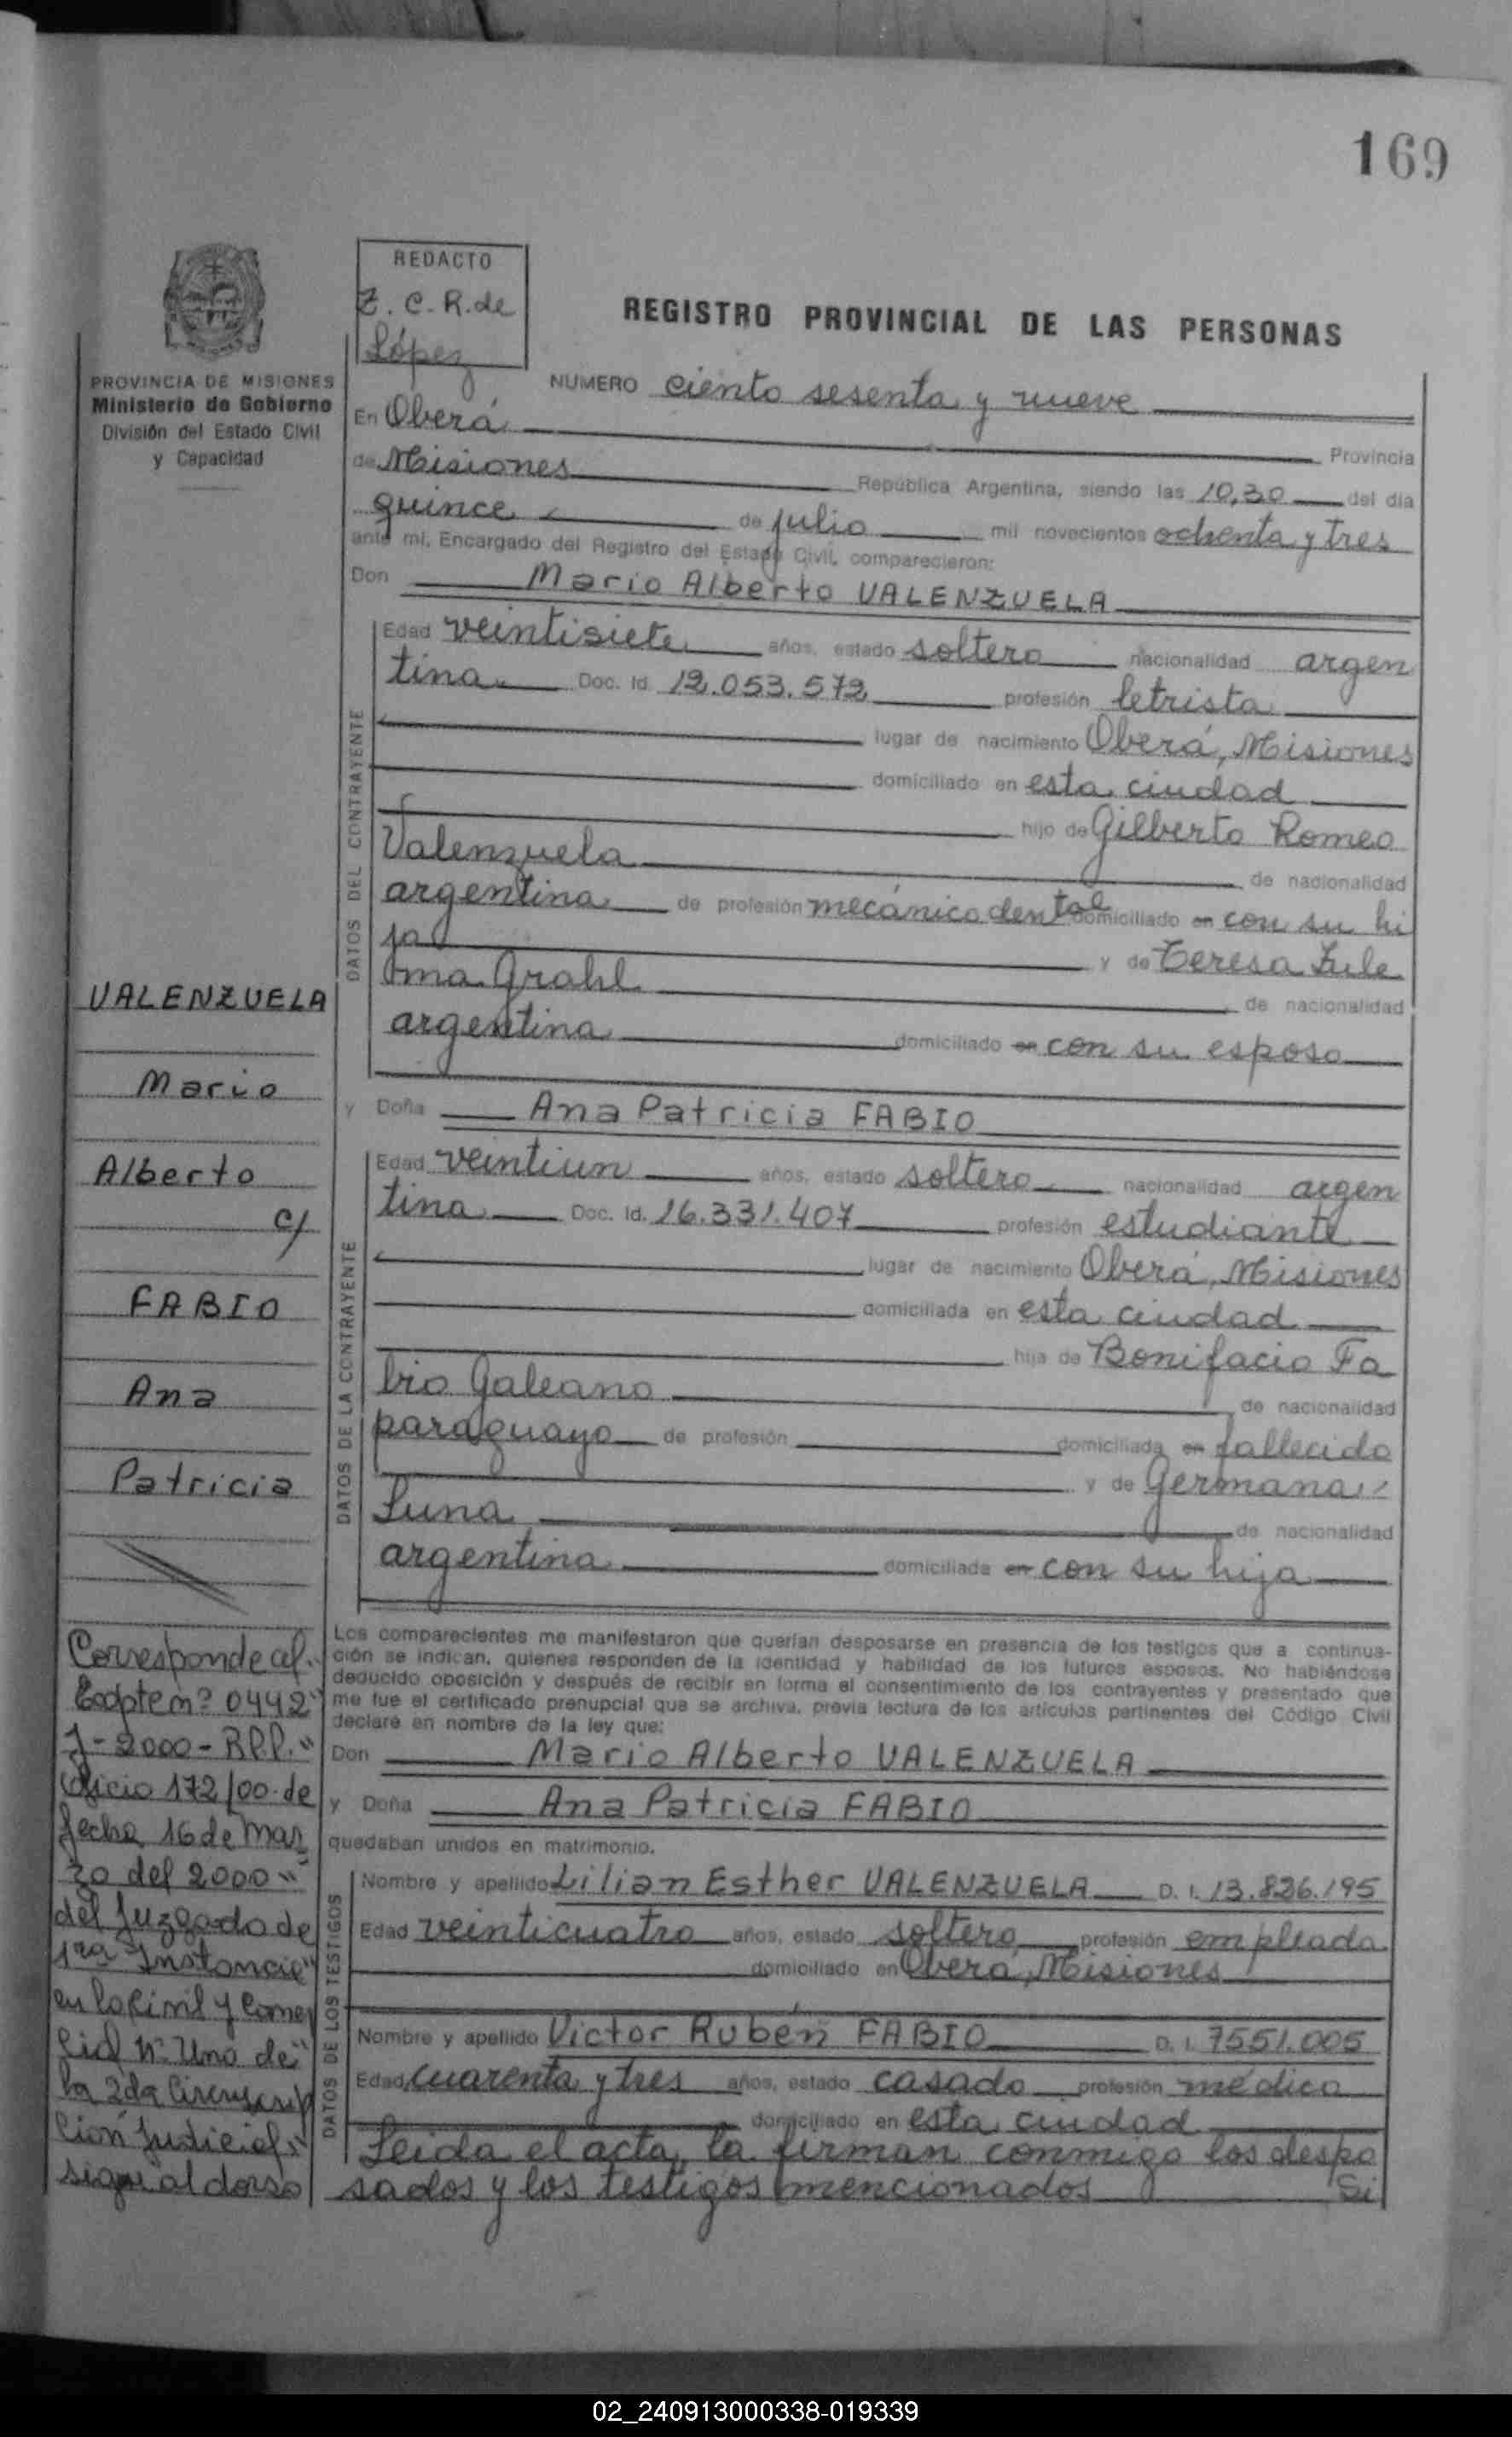 169
REDACTO
Z. C. R. de
López
REGISTRO PROVINCIAL DE LAS PERSONAS
PROVINCIA DE MISIONES
Ministerio de Gobierno
División del Estado Civil
y Capacidad
NUMERO ciento sesenta y nueve
En Oberá Provincia
de Misiones República Argentina, siendo las 10,30 del día
quince de julio mil novecientos ochenta y tres
ante mí, Encargado del Registro del Estado Civil, comparecieron:
Don Mario Alberto VALENZUELA
DATOS DEL CONTRAYENTE
Edad veintisiete años, estado soltero nacionalidad argen
tina Doc. Id. 12.053.572 profesión letrista
lugar de nacimiento Oberá, Misiones
domiciliado en esta ciudad
hijo de Gilberto Romeo
Valenzuela de nacionalidad
argentina de profesión mecánico dental domiciliado en con su hi
jo y de Teresa Zule
ma Grahl de nacionalidad
argentina domiciliado en con su esposo
y Doña Ana Patricia FABIO
DATOS DE LA CONTRAYENTE
Edad veintiun años, estado soltera nacionalidad argen
tina Doc. Id. 16.331.407 profesión estudiante
lugar de nacimiento Oberá, Misiones
domiciliada en esta ciudad
hija de Bonifacio Fa
bio Galeano de nacionalidad
paraguayo de profesión domiciliada en fallecido
y de Germana
Luna de nacionalidad
argentina domiciliada en con su hija
Los comparecientes me manifestaron que querían desposarse en presencia de los testigos que a continua-
ción se indican, quienes responden de la identidad y habilidad de los futuros esposos. No habiéndose
deducido oposición y después de recibir en forma el consentimiento de los contrayentes y presentado que
me fue el certificado prenupcial que se archiva, previa lectura de los artículos pertinentes del Código Civil
declaré en nombre de la ley que:
Don Mario Alberto VALENZUELA
y Doña Ana Patricia FABIO
quedaban unidos en matrimonio.
DATOS DE LOS TESTIGOS
Nombre y apellido Lilian Esther VALENZUELA D. I. 13.836.195
Edad veinticuatro años, estado soltera profesión empleada
domiciliado en Oberá, Misiones
Nombre y apellido Victor Rubén FABIO D. I. 7551.005
Edad cuarenta y tres años, estado casado profesión médico
domiciliado en esta ciudad
Leida el acta, la firman conmigo los despo
sados y los testigos mencionados Si
VALENZUELA
Mario
Alberto
c/
FABIO
Ana
Patricia
Corresponde al
Expte nº 0442
J-2000-RPP.
Oficio 172/00 de
fecha 16 de Mar
zo del 2000
del Juzgado de
1ra Instancia
en lo Civil y Comer
cial Nº Uno de
la 2da Circunscrip
ción Judicial
sigue al dorso
02_240913000338-019339